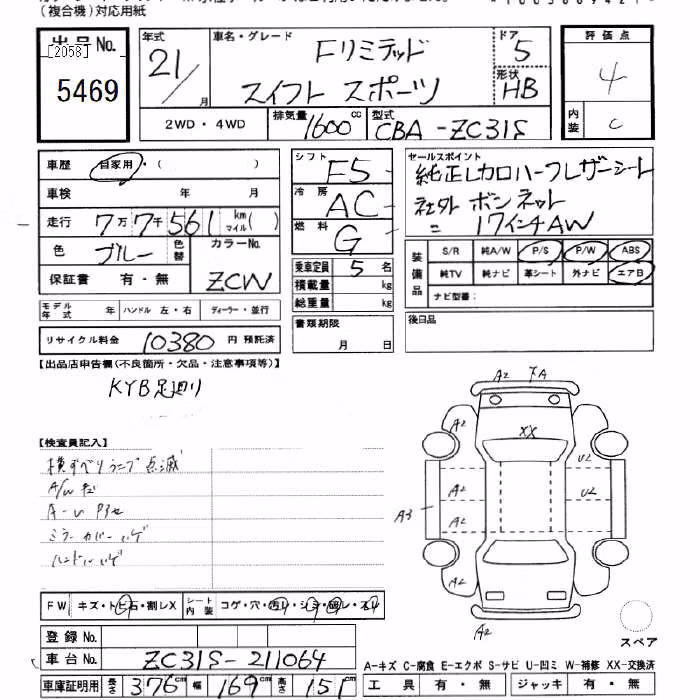 (複合機)対応用紙
出品No.
[2058]
5469
年式
21/
月
車名・グレード
Fリミテッド
スイフト スポーツ
ドア
5
形状
HB
評価点
4
内装
C
2WD・4WD
排気量
1600
cc
型式
CBA-ZC31S
車歴
自家用・( )
車検
年 月
走行
7万7千561
km
マイル( )
色
ブルー
色替
カラーNo.
ZCW
保証書
有・無
モデル年式
年
ハンドル 左・右
ディーラー・並行
リサイクル料金
10380
円 預託済
シフト
F5
冷房
AC
燃料
G
乗車定員
5名
積載量
kg
総重量
kg
書類期限
月 日
セールスポイント
純正レカロハーフレザーシート
社外 ボンネット
〃 17インチAW
装備品
S/R 純A/W P/S P/W ABS
純TV 純ナビ 革シート 外ナビ エアB
ナビ型番:
後日品
【出品店申告欄(不良箇所・欠品・注意事項等)】
KYB足廻り
【検査員記入】
横すべりランプ点滅
A/Wキズ
ミラーカバーハゲ
ハンドルハゲ
A2
A2
XX
A2
U2
A2
U2
A3
A2
A2
A2
FW
キズ・トビ石・割レX
シート内装
コゲ・穴・汚レ・シミ・破レ・スレ
登録No.
車台No.
ZC31S-211064
車庫証明用
長さ
376
cm
幅
169
cm
高さ
151
cm
スペア
A-キズ C-腐食 E-エクボ S-サビ U-凹ミ W-補修 XX-交換済
工具
有・無
ジャッキ
有・無